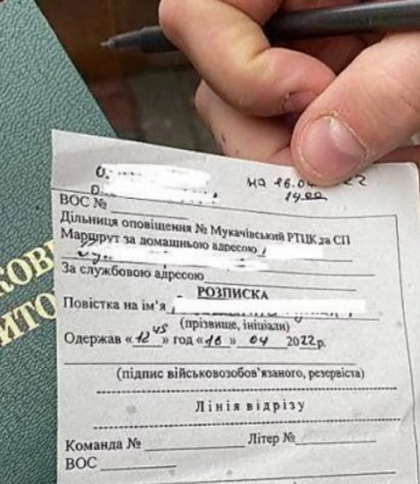 на 16.04 22
14.00
ВОС №
Дільниця оповіщення № Мукачівський РТЦК та СП
Маршрут за домашньою адресою
За службовою адресою
РОЗПИСКА
Повістка на ім'я
(прізвище, ініціали)
Одержав «12 45» год «16» 04 2022р.
(підпис військовозобов'язаного, резервіста)
Лінія відрізу
Команда № Літер №
ВОС